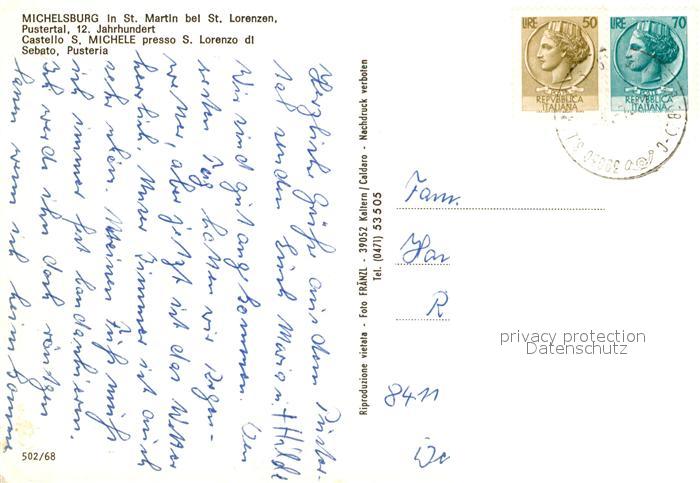 MICHELSBURG in St. Martin bei St. Lorenzen,
Pustertal, 12. Jahrhundert
Castello S, MICHELE presso S. Lorenzo di
Sebato, Pusteria
LIRE 50
REPVBBLICA
ITALIANA
LIRE 70
REPVBBLICA
ITALIANA
Herzliche Grüße aus dem Puster-
tal senden Euch Maria u. Hilde
Wir sind gut angekommen. Den
ersten Tag hatten wir Regen-
wetter, aber jetzt ist das Wetter
herrlich. Unser Zimmer ist auch
sehr schön. Meinen Fuß muß
ich immer fest bandagieren.
Ich werde ihn doch röntgen
lassen wenn ich heim komme
Riproduzione vietata - Foto FRÄNZL - 39052 Kaltern/Caldaro - Nachdruck verboten
Tel. (0471) 53505
Fam.
R
8411
privacy protection
Datenschutz
502/68